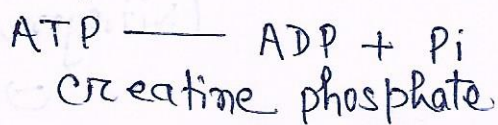 ATP —— ADP + Pi
creatine phosphate